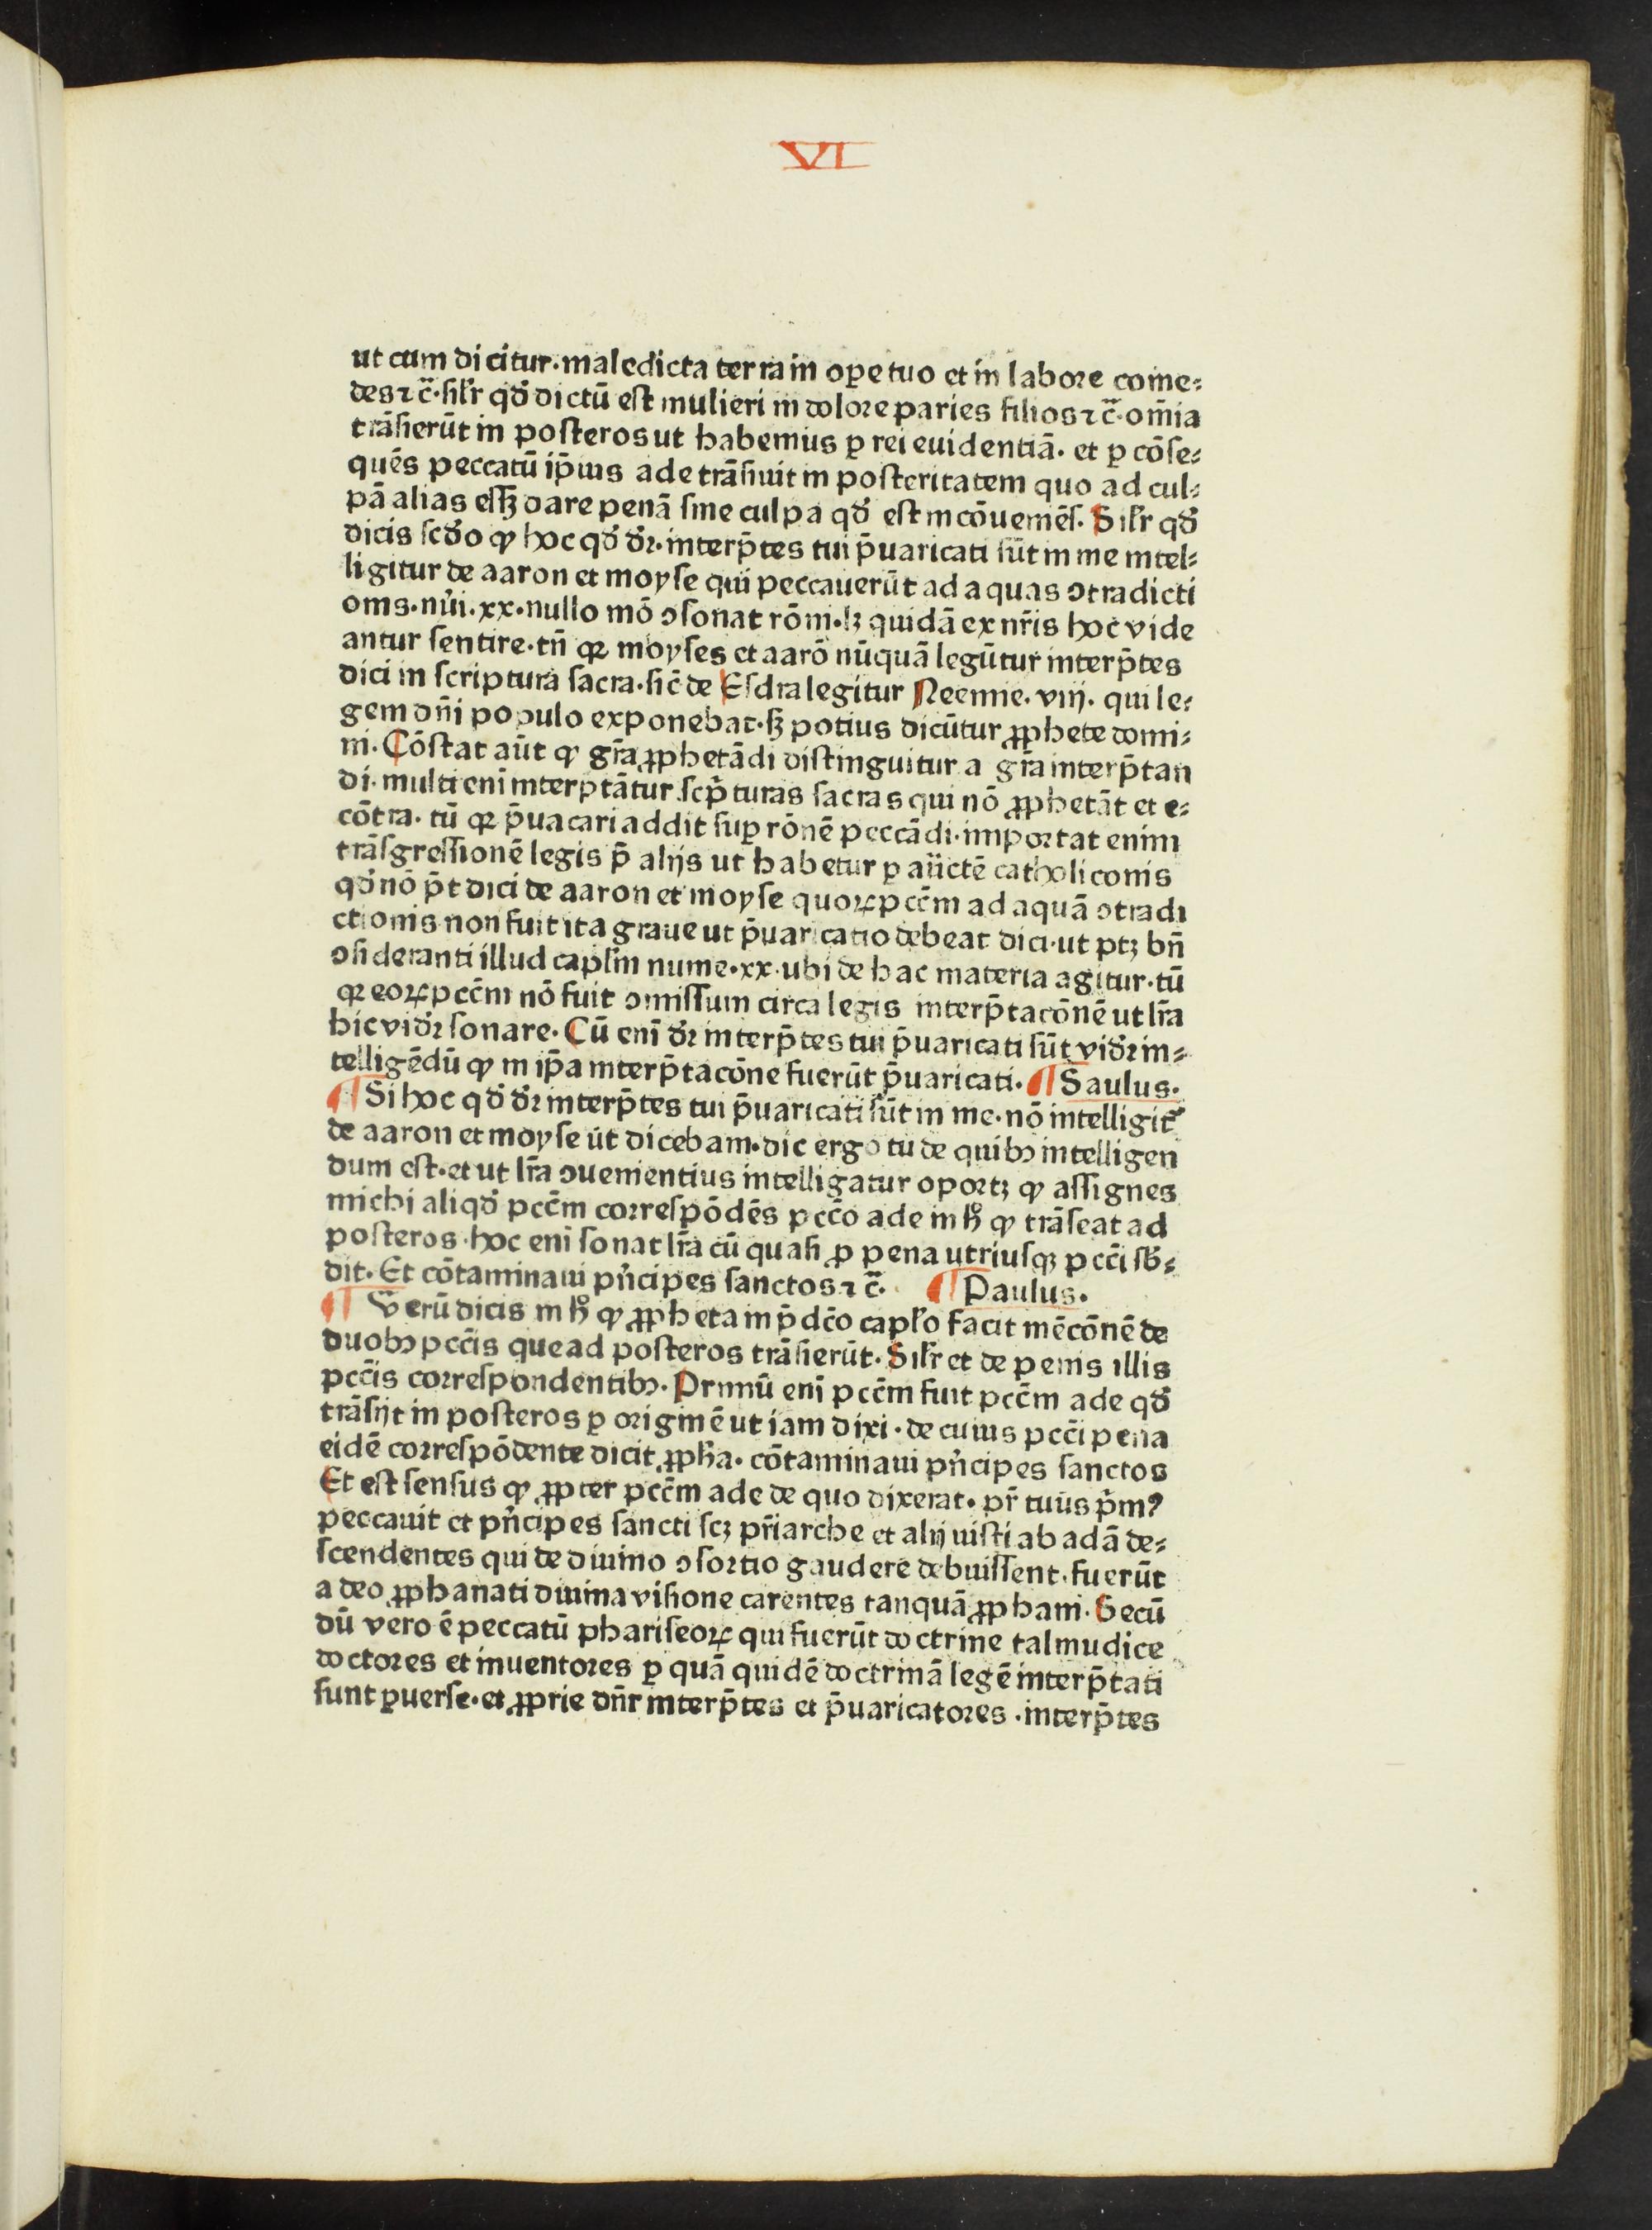 VI
ut cum dicitur·maledicta terra in oꝑe tuo et in labore come⸗
des ⁊ c̄·silr̄ qd̛ dictū est mulieri in dolore paries filios ⁊ c̄·om̄ia
trāsierūt in posteros ut habemus ꝑ rei euidentiā· et ꝑ cōse⸗
quēs peccatū ip̄ius ade trāsiuit in posteritatem quo ad cul⸗
pā alias essꝫ dare penā sine culpa qd̛ est incōueniēs· Silr̄ qd̛
dicis scd̛o ꝙ hoc qd̛ dr̛·interp̄tes tui p̄uaricati sūt in me intel⸗
ligitur de aaron et moyse qui peccauerūt ad aquas ↄtradicti
onis·nūi·xx·nullo mō ↄsonat rōni·lꝫ quidā ex nr̄is hoc vide
antur sentire·tn̄ qꝛ moyses et aarō nūquā legūtur interp̄tes
dici in scriptura sacra·sic̄ de Esdra legitur Neemie·viij· qui le⸗
gem dn̄i populo exponebat·sꝫ potius dicūtur ꝓphete domi⸗
ni· Cōstat aūt ꝙ gr̄a ꝓphetādi distinguitur a gr̄a interp̄tan
di· multi eni̅ interptātur scp̄turas sacras qui nō ꝓphetāt et e⸗
cōtra· tū qꝛ p̄uacari addit suꝑ rōnē peccādi·importat enim
trāsgressionē legis p̄ alijs ut habetur ꝑ aūctē catholiconis
qd̛ nō p̄t dici de aaron et moyse quoꝝ pcc̄m ad aquā ↄtradi
ctionis non fuit ita graue ut p̄uaricatio debeat dici·ut ptꝫ bn̄
ↄsideranti illud capl̄m nume·xx·ubi de hac materia agitur·tū
qꝛ eoꝝ pcc̄m nō fuit ↄmissum circa legis interp̄tacōnē ut lr̄a
hic vidr̛ sonare· Cū eni̅ dr̛ interp̄tes tui p̄uaricati sūt vidr̛ in⸗
telligēdū ꝙ in ip̄a interp̄tacōne fuerūt p̄uaricati· ¶ Saulus·
¶ Si hoc qd̛ dr̛ interp̄tes tui p̄uaricati sūt in me·nō intelligit᷑
de aaron et moyse ut dicebam·dic ergo tu de quibꝰ intelligen
dum est·et ut lr̄a ↄuenientius intelligatur oportꝫ ꝙ assignes
michi aliqd̛ pcc̄m correspōdēs pcc̄o ade in hͦ ꝙ trāseat ad
posteros·hoc eni sonat lr̄a cū quasi ꝓ pena utriusqꝫ pcc̄i sb̛⸗
dit· Et cōtaminaui pn̛cipes sanctos ⁊ c̄· ¶ Paulus·
¶ Verū dicis in hͦ ꝙ ꝓpheta in p̄dc̄o capl̄o facit mēcōnē de
duobꝰ pcc̄is que ad posteros trāsierūt· Silr̄ et de penis illis
pcc̄is correspondentibꝰ· Primū eni̅ pcc̄m fuit pcc̄m ade qd̛
trāsijt in posteros ꝑ originē ut iam dixi·de cuius pcc̄i pena
eidē correspōdente dicit ꝓph̄a· cōtaminaui pn̛cipes sanctos
Et est sensus ꝙ ꝓpter pcc̄m ade de quo dixerat· pr̄ tuus p̄mꝰ
peccauit et pn̛cipes sancti scꝫ pr̄iarche et alij iusti ab adā de⸗
scendentes qui de diuino ↄsortio gaudere debuissent·fuerūt
a deo ꝓphanati diuina visione carentes tanquā ꝓphani· Secū
dū vero ē peccatū phariseoꝝ qui fuerūt doctrine talmudice
doctores et inuentores ꝑ quā quidē doctrinā legē interp̄tati
sunt ꝑuerse·et ꝓprie dn̄r interp̄tes et p̄uaricatores·interp̄tes